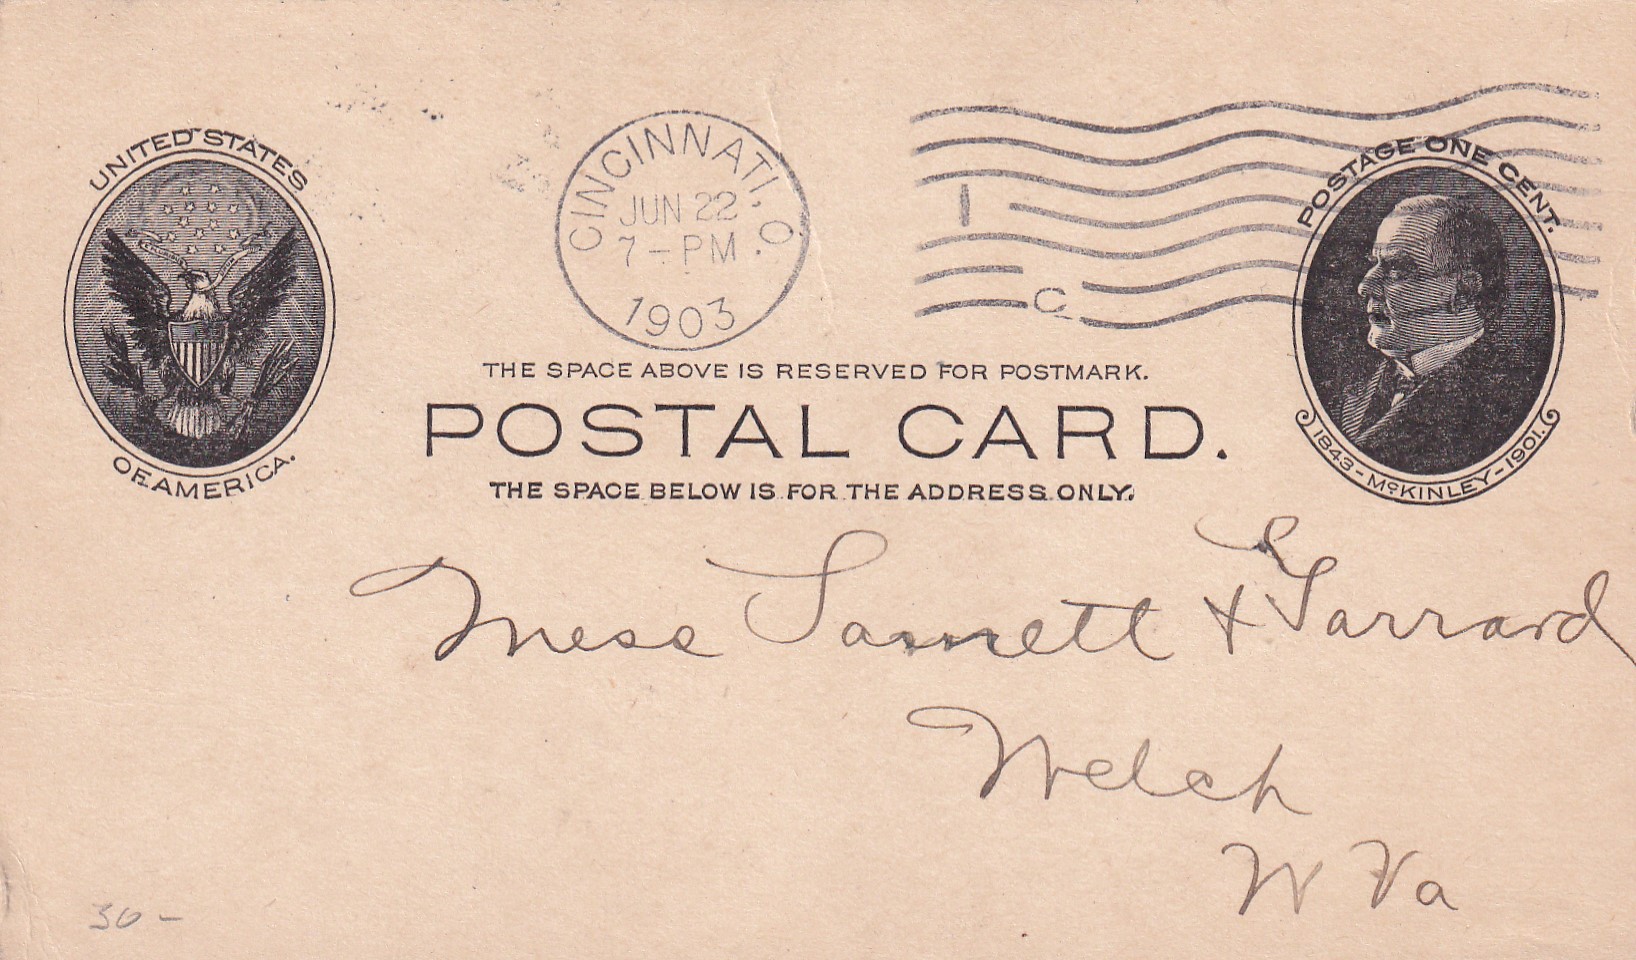 UNITED STATES
OF AMERICA.
CINCINNATI, O.
JUN 22
7-PM
1903
1
C
POSTAGE ONE CENT.
1843-McKINLEY-1901.
THE SPACE ABOVE IS RESERVED FOR POSTMARK.
POSTAL CARD.
THE SPACE BELOW IS FOR THE ADDRESS ONLY.
& Garrard
Welch
W Va
30-